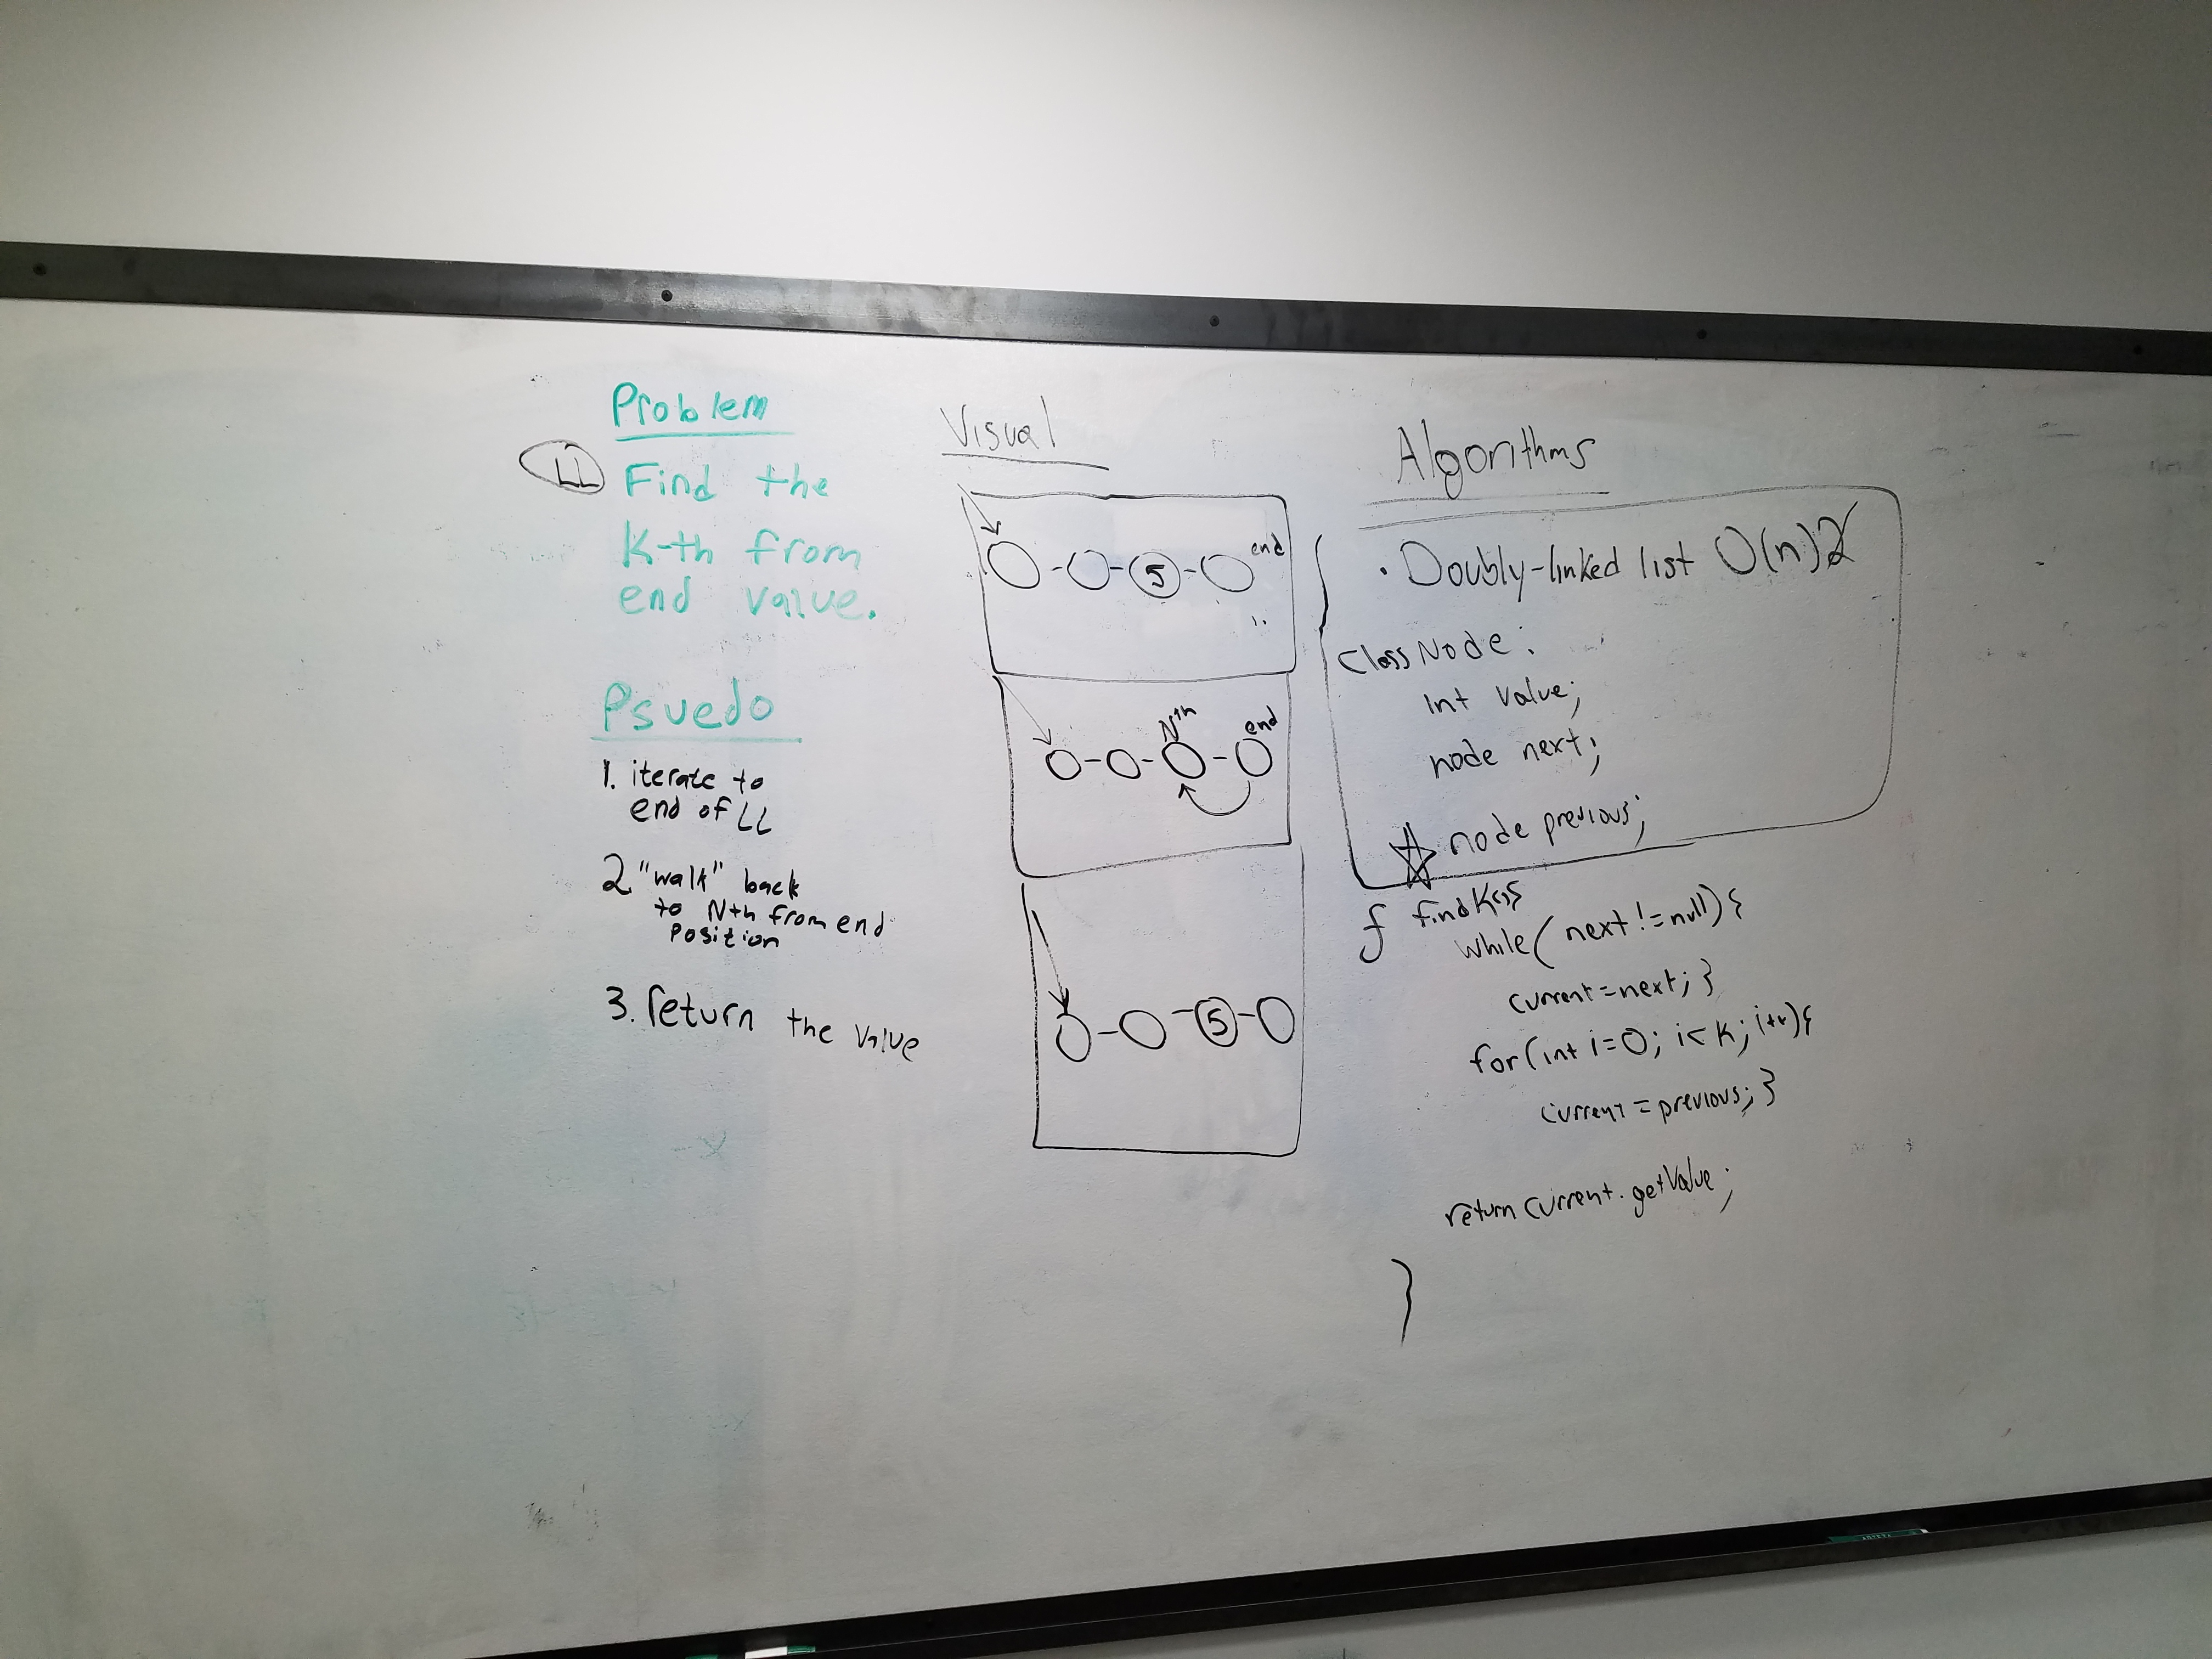 Problem
LL
Find the
K-th from
end value.
Psvedo
1. iterate to
end of LL
2 "walk" back
to Nth from end
Position
3. return the value
Visual
5
end
Nth
end
5
Algorithms
• Doubly-linked list O(n)
Class Node:
int value;
node next;
☆ node previous;
f findK
while(next != null){
current=next; }
for(int i=0; i<k; i++){
current = previous; }
return current.getValue;
}